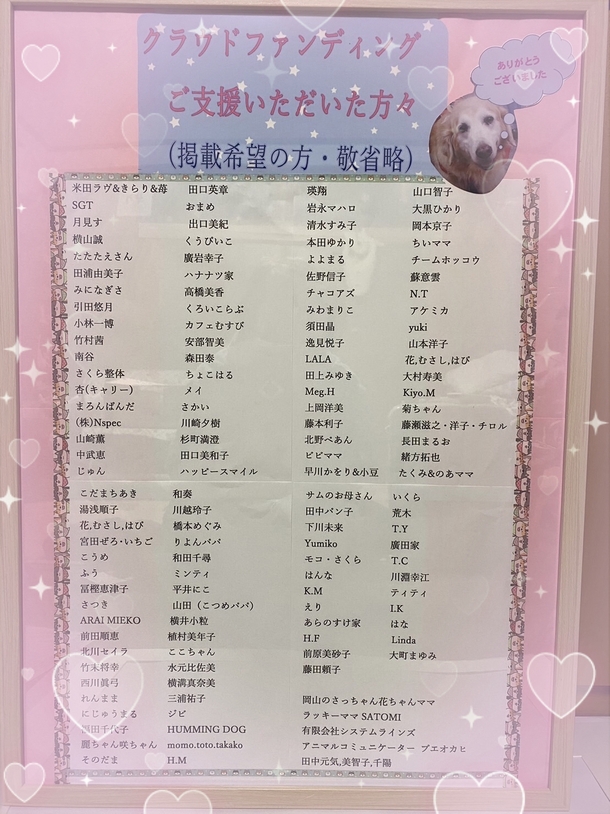 クラウドファンディング
ご支援いただいた方々
(掲載希望の方・敬省略)
ありがとう
ございました
米田ラヴ&きらり&苺 田口英章 瑛翔 山口智子
SGT おまめ 岩永マハロ 大黒ひかり
月見す 出口美紀 清水すみ子 岡本京子
横山誠 くうぴいこ 本田ゆかり ちいママ
たたたえさん 廣岩幸子 よよまる チームホッコウ
田浦由美子 ハナナツ家 佐野信子 蘇意雲
みになぎさ 高橋美香 チャコアズ N.T
引田悠月 くろいこらぶ みわまりこ アケミカ
小林一博 カフェむすび 須田晶 yuki
竹村茜 安部智美 逸見悦子 山本洋子
南谷 森田泰 LALA 花,むさし,はび
さくら整体 ちょこはる 田上みゆき 大村寿美
杏(キャリー) メイ Meg.H Kiyo.M
まろんぱんだ さかい 上岡洋美 菊ちゃん
(株)Nspec 川崎夕樹 藤本利子 藤瀬滋之・洋子・チロル
山崎薫 杉町満澄 北野べあん 長田まるお
中武恵 田口美和子 ビビママ 緒方拓也
じゅん ハッピースマイル 早川かをり&小豆 たくみ&のあママ
こだまちあき 和奏 サムのお母さん いくら
湯浅順子 川越玲子 田中パン子 荒木
花,むさし,はび 橋本めぐみ 下川未来 T.Y
宮田ぜろ・いちご りよんパパ Yumiko 廣田家
こうめ 和田千尋 モコ・さくら T.C
ふう ミンティ はんな 川淵幸江
冨樫恵津子 平井にこ K.M ティティ
さつき 山田（こつめパパ） えり I.K
ARAI MIEKO 横井小粒 あらのすけ家 はな
前田順恵 植村美年子 H.F Linda
北川セイラ ここちゃん 前原美砂子 大町まゆみ
竹末将幸 水元比佐美 藤田頼子
西川眞弓 横溝真奈美
れんまま 三浦祐子 岡山のさっちゃん花ちゃんママ
にじゅうまる ジビ ラッキーママ SATOMI
田千代子 HUMMING DOG 有限会社システムラインズ
麗ちゃん咲ちゃん momo.toto.takako アニマルコミュニケーター プエオカヒ
そのだま H.M 田中元気,美智子,千陽